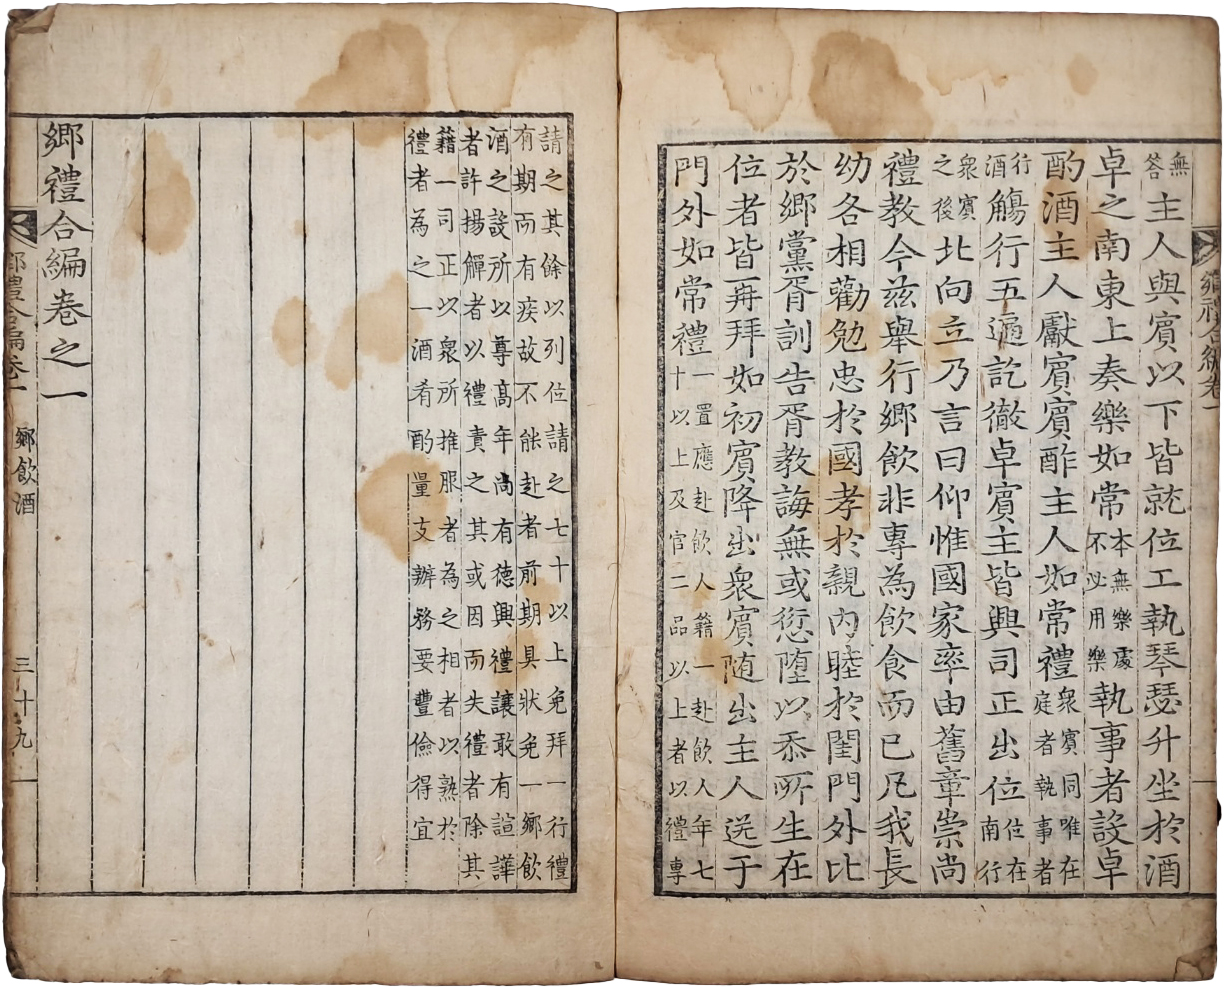 無答主人與賓以下皆就位工執琴瑟升坐於酒
卓之南東上奏樂如常本無樂處不必用樂執事者設卓
酌酒主人獻賓賓酢主人如常禮衆賓同唯在庭者執事者
行酒觴行五遍訖徹卓賓主皆興司正出位位在南行
衆賓之後北向立乃言曰仰惟國家率由舊章崇尚
禮教今茲舉行鄉飲非專為飲食而已凡我長
幼各相勸勉忠於國孝於親內睦於閨門外比
於鄉黨胥訓告胥教誨無或愆墮以忝所生在
位者皆再拜如初賓降出衆賓随出主人送于
門外如常禮一置應赴飲人籍一赴飲人年七十以上及官二品以上者以禮專
請之其餘以列位請之七十以上免拜一行禮
有期而有疾故不能赴者前期具狀免一鄉飲
酒之設所以尊高年尚有德興禮讓敢有諠譁
者許揚觶者以禮責之其或因而失禮者除其
籍一司正以衆所推服者為之相者以熟於
禮者為之一酒肴酌量支辦務要豐儉得宜
鄉禮合編卷之一
鄉禮合編卷一 鄉飲酒 三十九